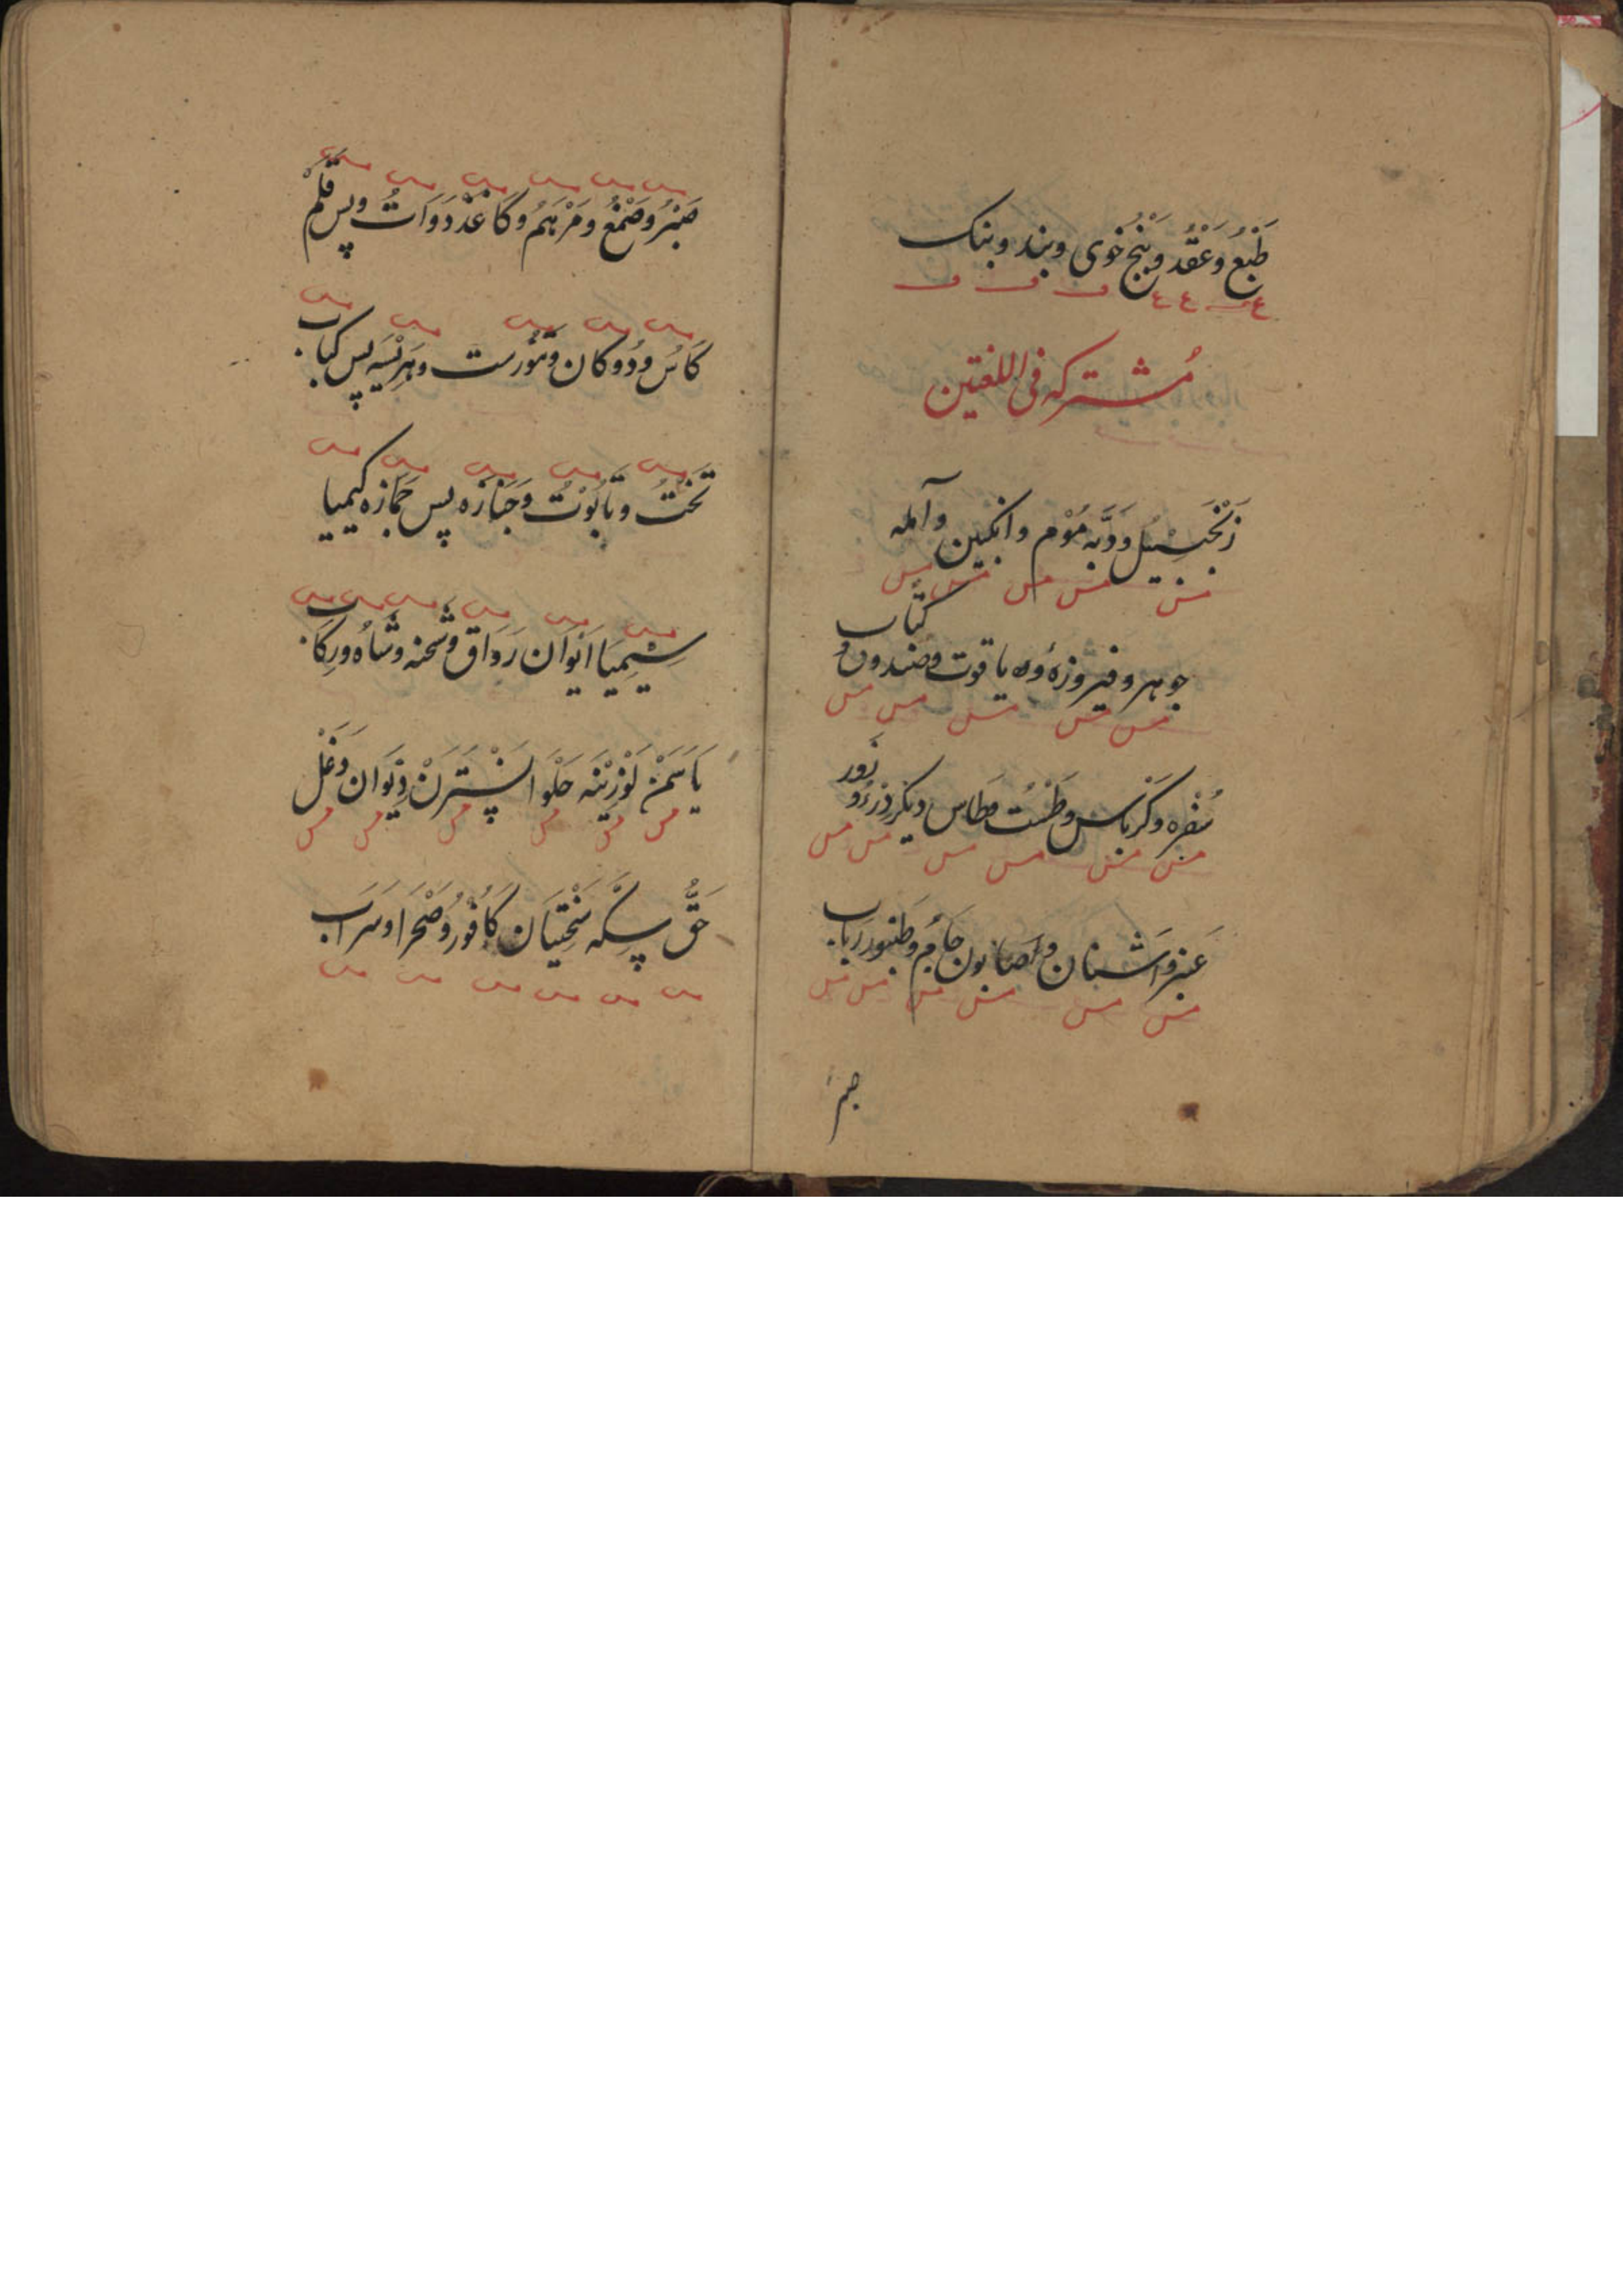 طَبْعُ وَ عَقْدُ و بَنْج خوى و بند و بنك
ع ع ع ف ف ف
مُشتركه فى اللغتين
زَنْجَبِيْل و دَبّه مُوْم و انكبين و آمله
جوهر و فيروزهٔ و ياقوت و صندوق و كتاب
سُفْره و كَرْباس و طَشْت و طاس ديكر زر و زَوْر
عَنبر و اَشنان و صابون جام و طنبور رباب
صبر
صَبْرُ و صَمْغُ و مَرْهَمُ و كاغَذْ دَوَاتُ و پس قَلَمْ
كَاسُ و دوكان و تنّورست و هَرِيْسَه پس كباب
تَخْتُ و تابُوْتُ و جَنَازَه پس جَمّازه كيميا
سِيْمِيَا اَيْوَان رَوَاق و شحنه و شَاهُ و رِكاب
يَاسَمَنْ لَوْزِيْنَه حَلْوا نَسْتَرَنْ دِيْوَان دَغَلْ
حَقُّ سِكَّه سَخْتِيَان كَافُوْرُ و صَحْرَا و سَرَاب